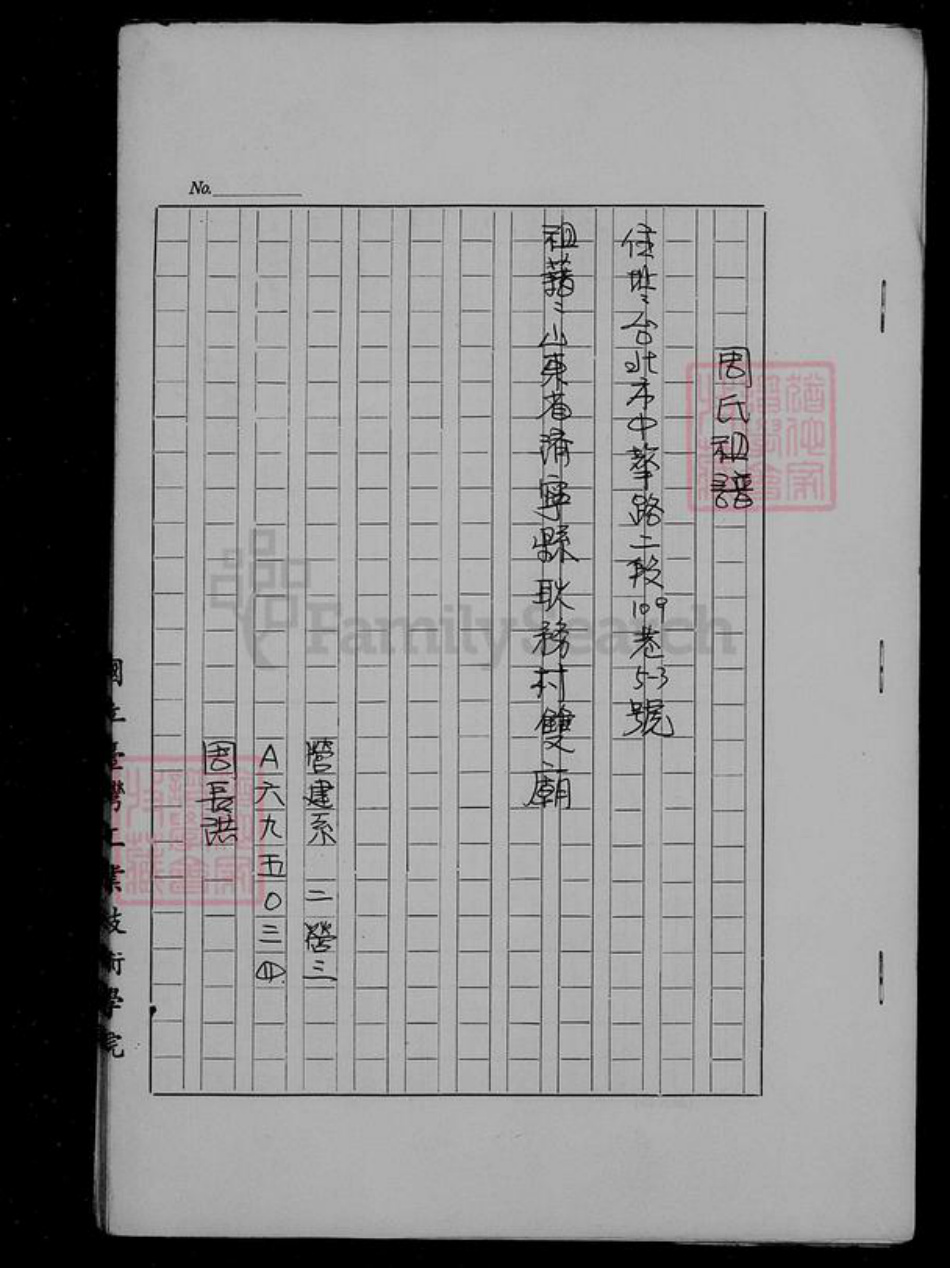 No.
周氏祖譜
住址：台北市中華路二段109巷5-3號
祖籍：山東省濟寧縣耿務村雙廟
營建系 二營三
A六九五0三四
周長洪
國立臺灣工業技術學院
FamilySearch